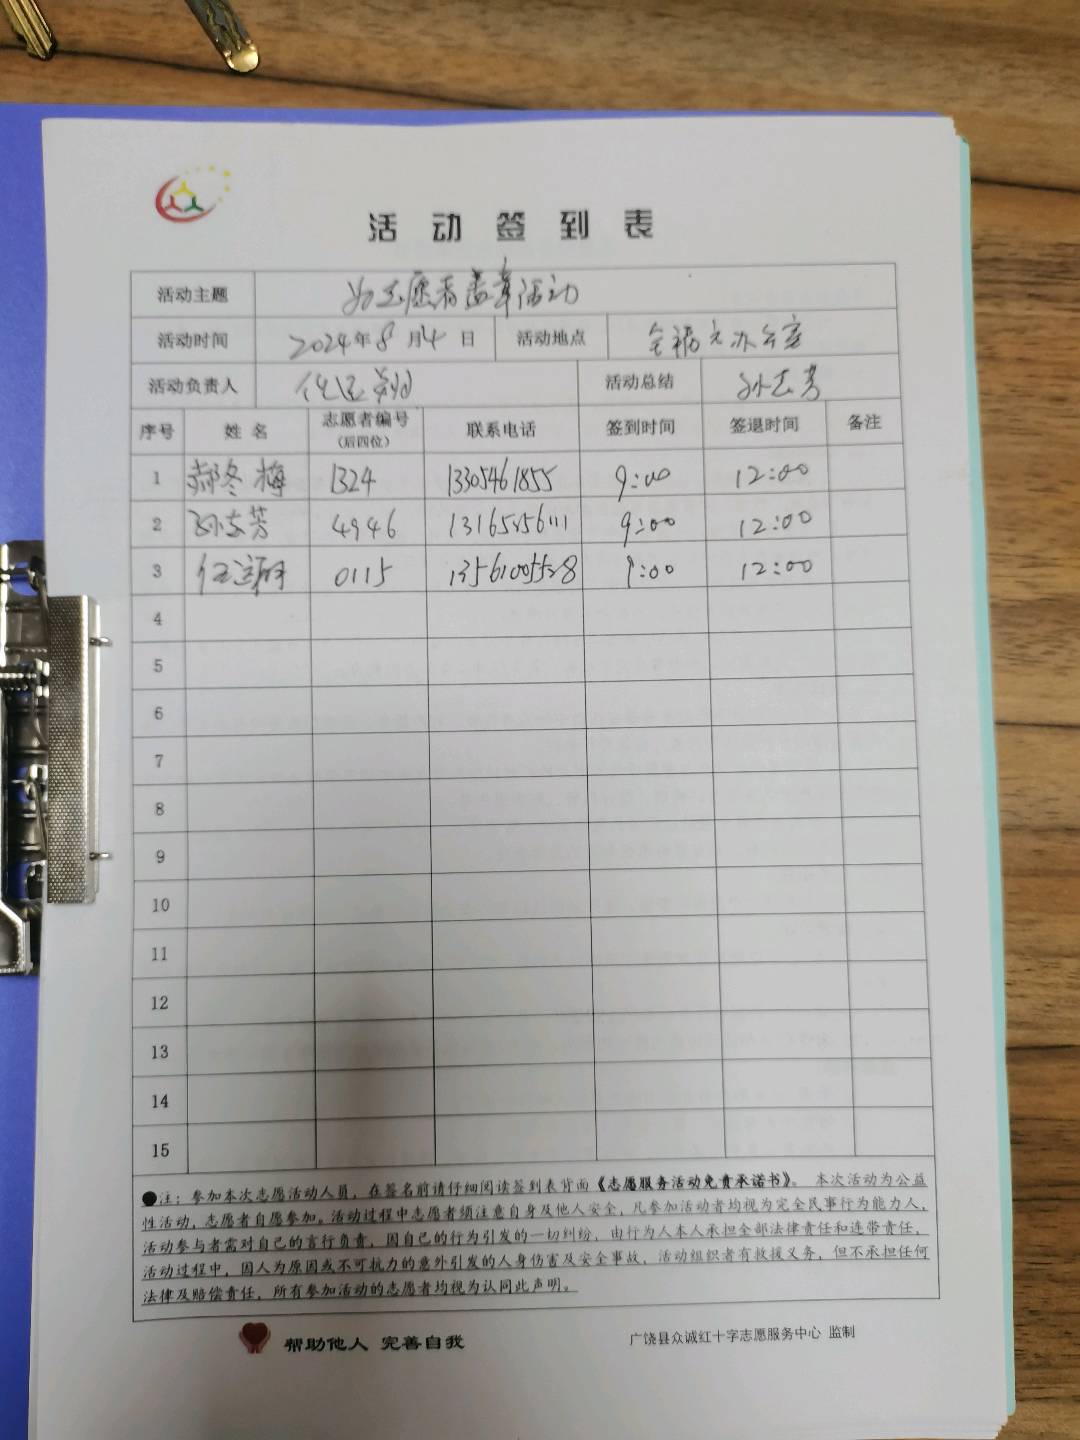 活动签到表
活动主题 为志愿者盖章活动
活动时间 2024年8月4日 活动地点 全福元办公室
活动负责人 活动总结 孙志芳
序号 姓名 志愿者编号（后四位） 联系电话 签到时间 签退时间 备注
1 郝冬梅 1324 13305461855 9:00 12:00
2 孙志芳 4946 9:00 12:00
3 0115 9:00 12:00
4
5
6
7
8
9
10
11
12
13
14
15
●注：参加本次志愿活动人员，在签名前请仔细阅读签到表背面《志愿服务活动免责承诺书》。本次活动为公益
性活动，志愿者自愿参加。活动过程中志愿者须注意自身及他人安全，凡参加活动者均视为完全民事行为能力人，
活动参与者需对自己的言行负责，因自己的行为引发的一切纠纷，由行为人本人承担全部法律责任和连带责任，
活动过程中，因人为原因或不可抗力的意外引发的人身伤害及安全事故，活动组织者有救援义务，但不承担任何
法律及赔偿责任，所有参加活动的志愿者均视为认同此声明。
帮助他人 完善自我 广饶县众诚红十字志愿服务中心 监制